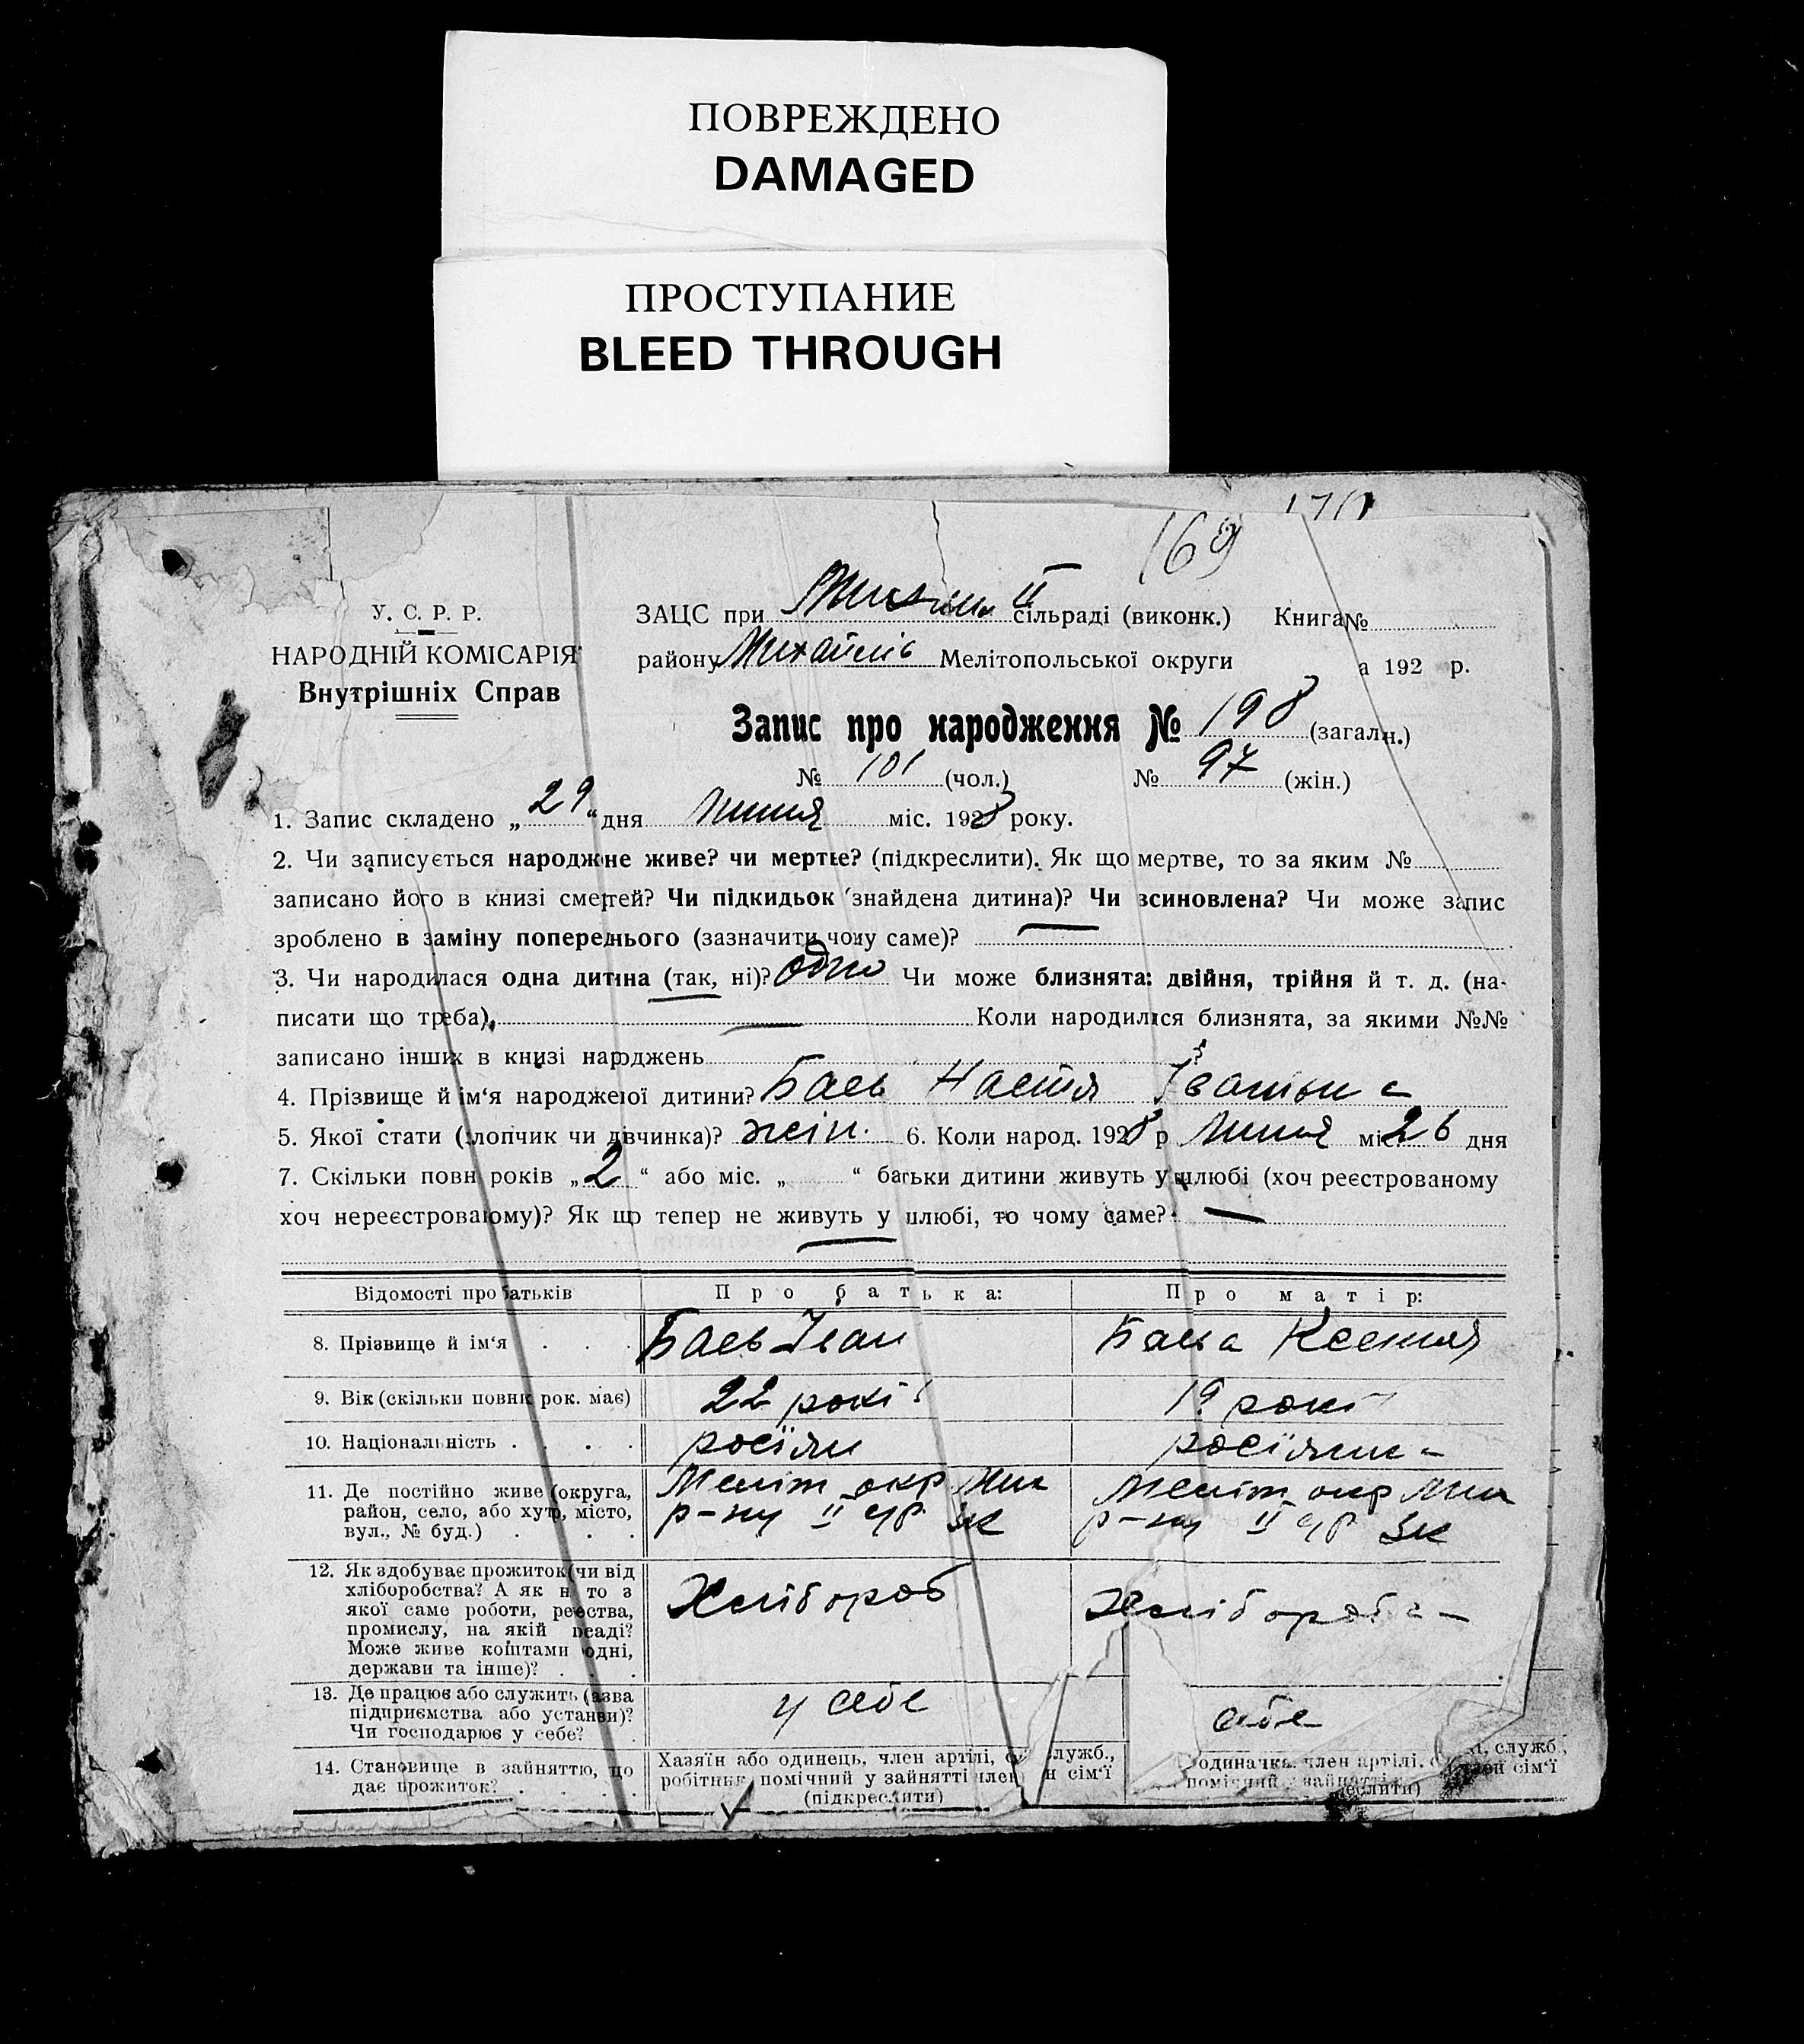 ПОВРЕЖДЕНО
DAMAGED
ПРОСТУПАНИЕ
BLEED THROUGH
169
У. С. Р. Р.
НАРОДНІЙ КОМІСАРІЯ
Внутрішніх Справ
ЗАЦС при II сільраді (виконк.) Книга №
району Михайлів Мелітопольської округи а 192 р.
Запис про народження № 198 (загалн.)
№ 101 (чол.) № 97 (жін.)
1. Запис складено „29“ дня липня міс. 1928 року.
2. Чи записується народжне живе? чи мертве? (підкреслити). Як що мертве, то за яким №
записано його в книзі смертей? Чи підкидьок (знайдена дитина)? Чи всиновлена? Чи може запис
зроблено в заміну попереднього (зазначити чому саме)? —
3. Чи народилася одна дитина (так, ні)? одно Чи може близнята: двійня, трійня й т. д. (на-
писати що треба), — Коли народилися близнята, за якими №№
записано інших в книзі народжень ?
4. Прізвище й ім‘я народженої дитини? Баев Настя Іванівна
5. Якої стати (хлопчик чи дівчинка)? жін. 6. Коли народ. 1928 р липня міс. 26 дня
7. Скільки повн років „2“ або міс. „ “ батьки дитини живуть у шлюбі (хоч реєстрованому
хоч нереєстрованому)? Як що тепер не живуть у шлюбі, то чому саме? —
Відомості про батьків Про батька: Про матір:
8. Прізвище й ім‘я . . . Баев Іван Баева Ксения
9. Вік (скільки повних рок. має) 22 років 19 років
10. Національність . . . . росіян росіянка
11. Де постійно живе (округа, Меліт окр Мих Меліт окр Мих
район, село, або хутр, місто, р-ну II ЗК р-ну II ЗК
вул., № буд.) . . .
12. Як здобуває прожиток (чи від
хліборобства? А як н то з Хлібороб Хлібороб
якої саме роботи, ремества,
промислу, на якій посаді?
Може живе коштами родні,
держави та інше)? . . .
13. Де працює або служить (назва у себе себе
підприємства або установи)?
Чи господарює у себе?
14. Становище в зайняттю, що Хазяїн або одинець, член артілі, служб., одиначка, член артілі, служб.,
дає прожиток? . . . . робітник, помічний у зайнятті член сім‘ї помічний у зайнятті член сім‘ї
(підкреслити)